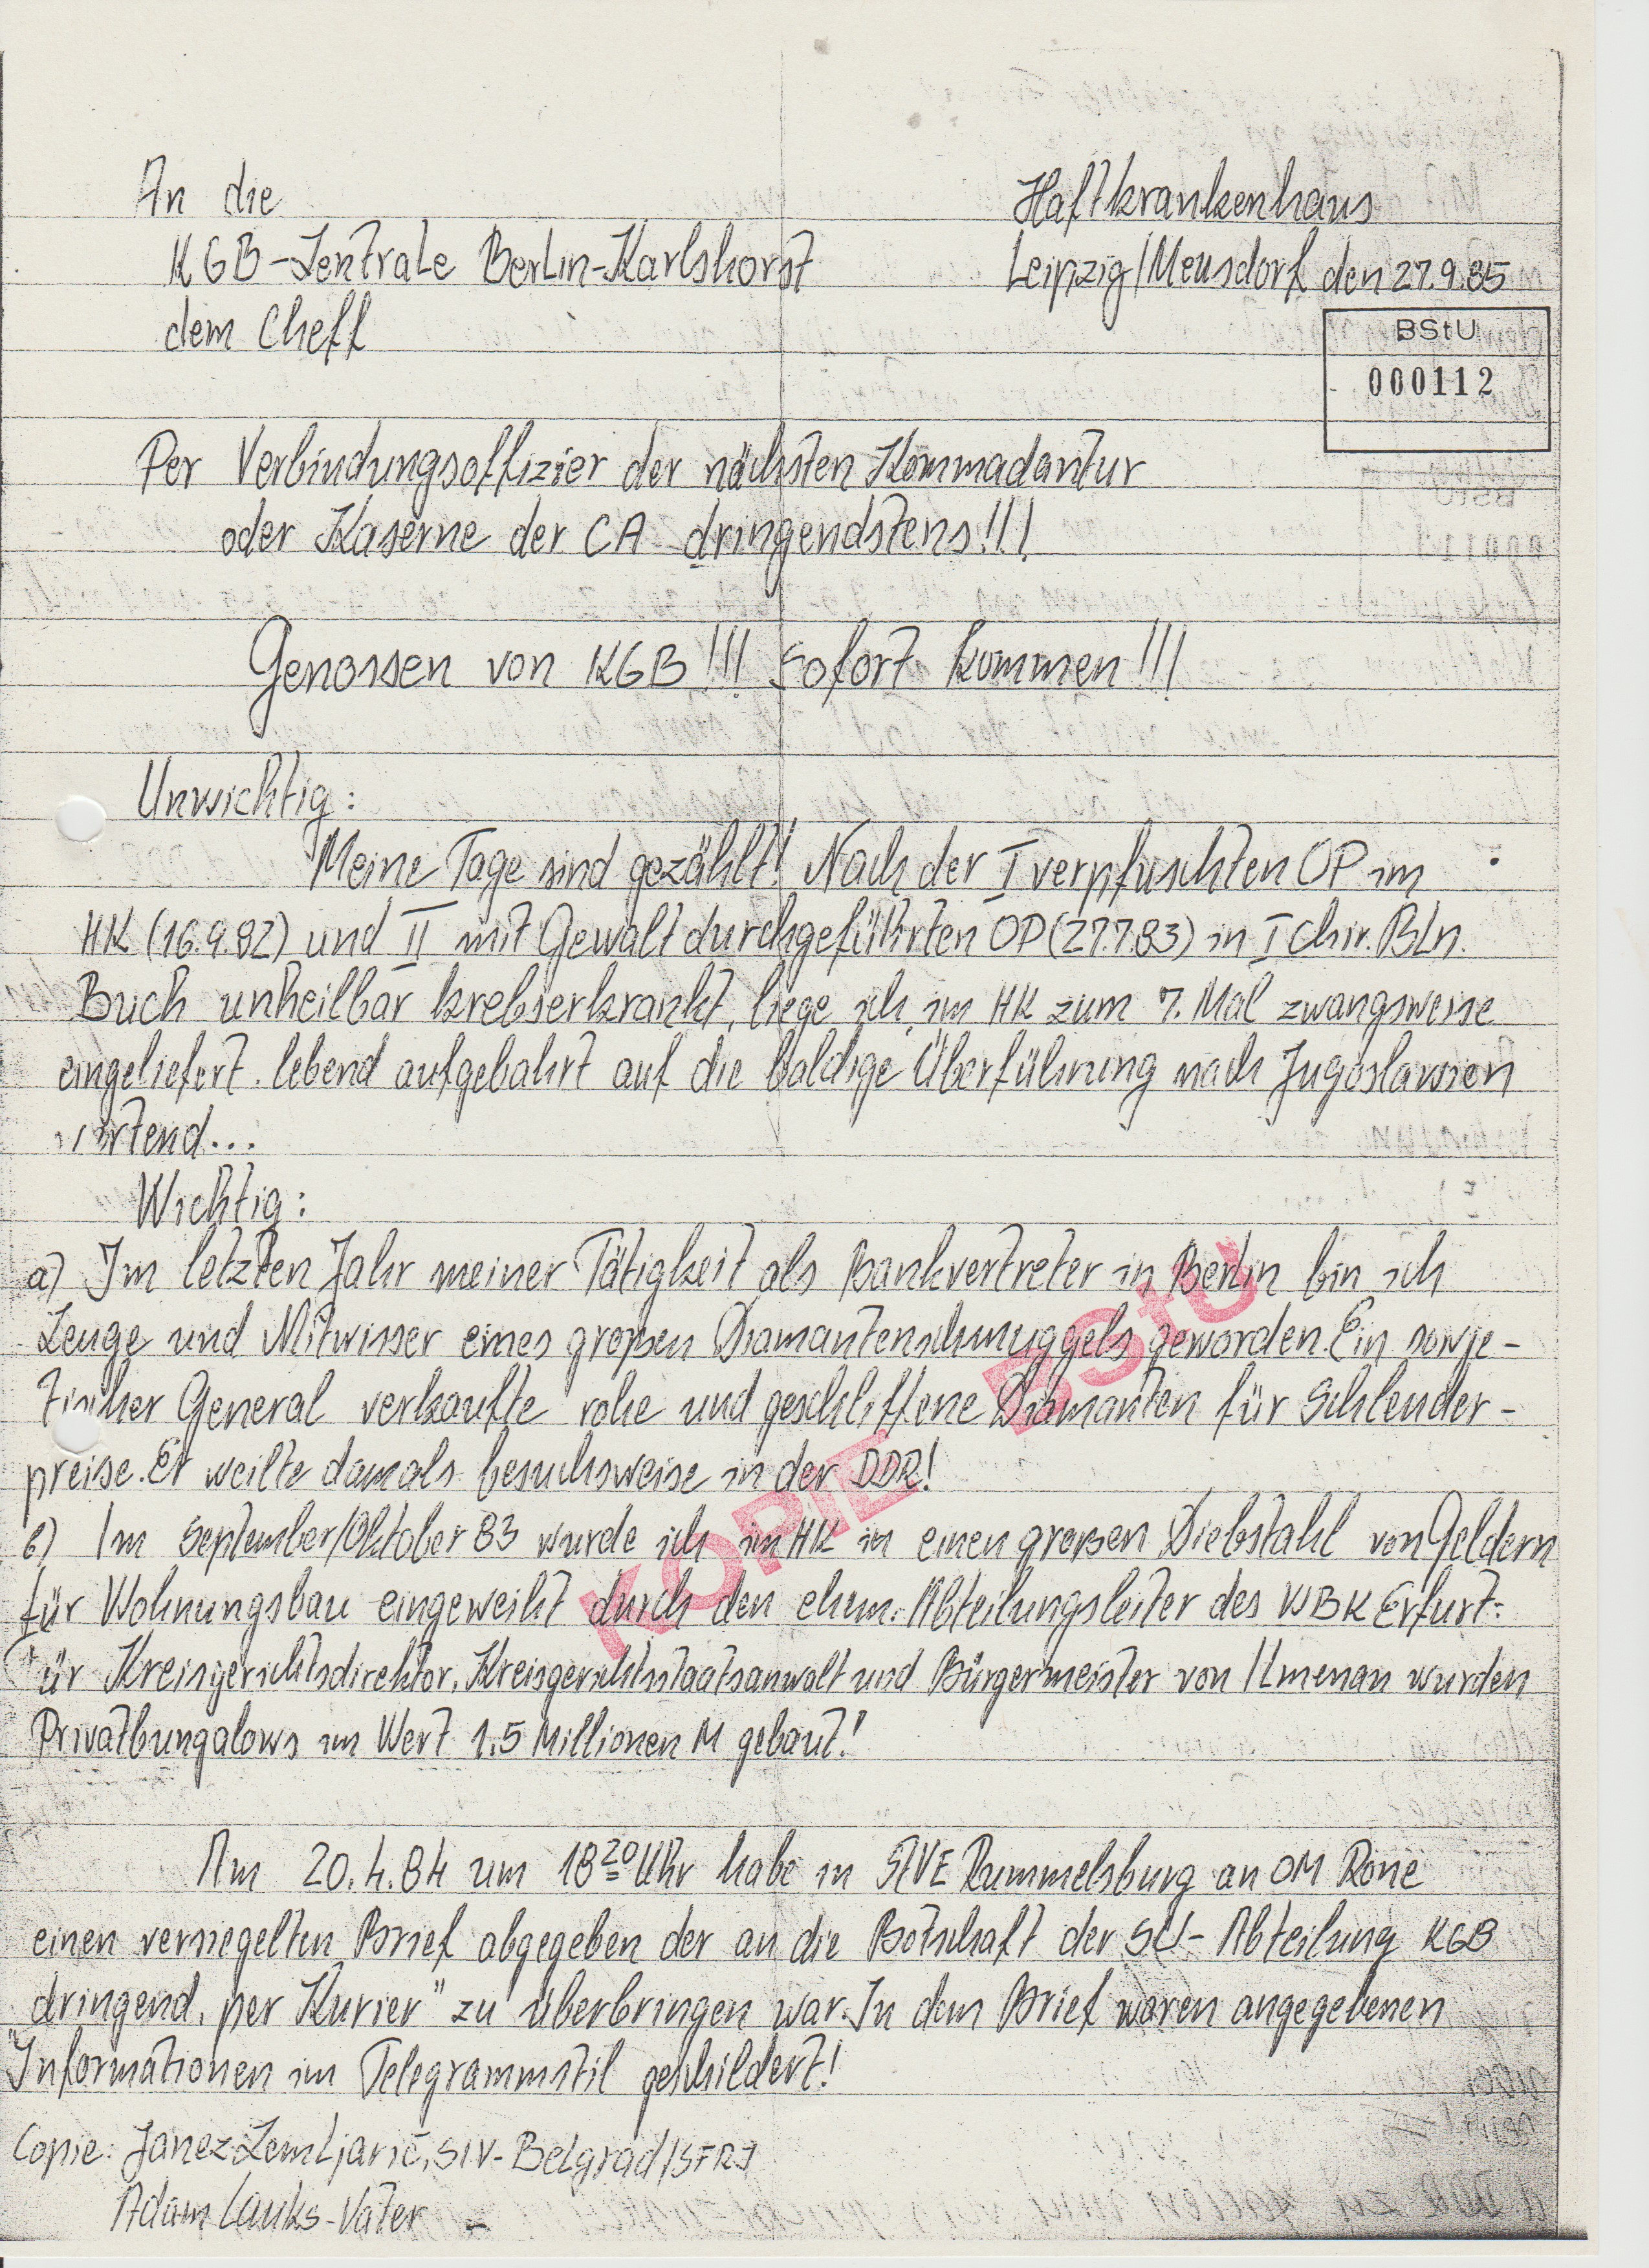 An die
KGB-Zentrale Berlin-Karlshorst
dem Cheff
Haftkrankenhaus
Leipzig/Meusdorf den 27.9.85
BStU
000112
Per Verbindungsoffizier der nächsten Kommadantur
oder Kaserne der CA dringendstens!!!
Genossen von KGB!!! Sofort kommen!!!
Unwichtig:
Meine Tage sind gezählt! Nach der I verpfuschten OP im
HK (16.9.82) und II mit Gewalt durchgeführten OP (27.7.83) in I Chir. Bln.
Buch unheilbar krebserkrankt, liege ich, im HK zum 7. Mal zwangsweise
eingeliefert. lebend aufgebahrt auf die baldige Überführung nach Jugoslawien
artend...
Wichtig:
a) Im letzten Jahr meiner Tätigkeit als Bankvertreter in Berlin bin ich
Zeuge und Mitwisser eines großen Diamantenschmuggels geworden. Ein sowje-
tischer General verkaufte rohe und geschliffene Diamanten für Schleuder-
preise. Er weilte damals besuchsweise in der DDR!
b) Im September/Oktober 83 wurde ich im HK in einen großen Diebstahl von Geldern
für Wohnungsbau eingeweiht durch den ehem. Abteilungsleiter des WBK Erfurt:
Für Kreisgerichtsdirektor, Kreisgerichtsstaatsanwalt und Bürgermeister von Ilmenau wurden
Privatbungalows im Wert 1,5 Millionen M gebaut!
KOPIE BStU
Am 20.4.84 um 18 20 Uhr habe in StVE Rummelsburg an OM Rone
einen versiegelten Brief abgegeben der an die Botschaft der SU- Abteilung KGB
dringend „per Kurier" zu überbringen war. In dem Brief waren angegebenen
Informationen im Telegrammstil geschildert!
Copie: Janez Zemljarič, SIV- Belgrad/SFRJ
Adam Lauks - Vater -